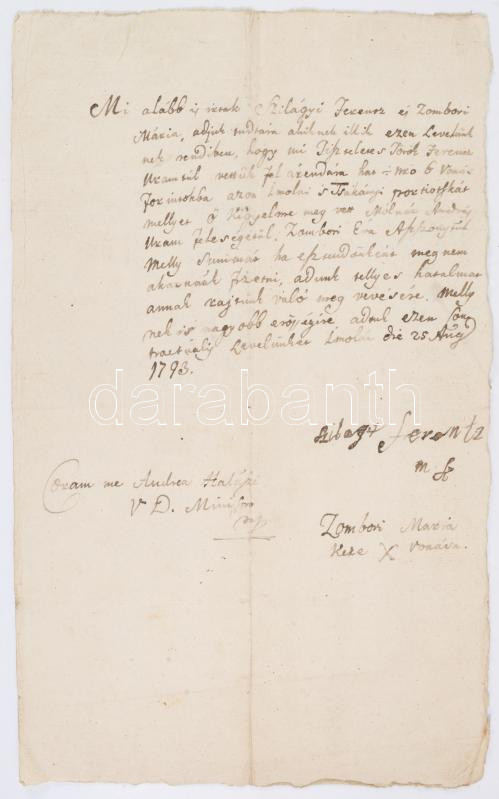 Mi alább is irtak Szilágyi Ferencz és Zombori
Mária, adjuk tudtára akiknek illik ezen Levelünk
nek rendiben, hogy mi Tiszteletes Török Ferencz
Uramtúl vettük fel árendára hat No 6 Vonás
forintokba azon Imolai s Trizsi portiotskát
mellyet Kigyelme meg vett Molnár András
Uram feleségétül, Zombori Éva Aszszonytúl
Melly Summát ha esztendőnként meg nem
akarnánk fizetni, adunk tellyes hatalmat
annak rajtunk való meg vevésére. Melly
nek is nagyobb erősségére adtuk ezen Con
tractualis Levelünket Imolán die 25 Aug
1793.
Szilagyi Ferentz
Coram me Andrea
V. D. Ministro
Zombori Maria
Keze X Vonása.
darabanth